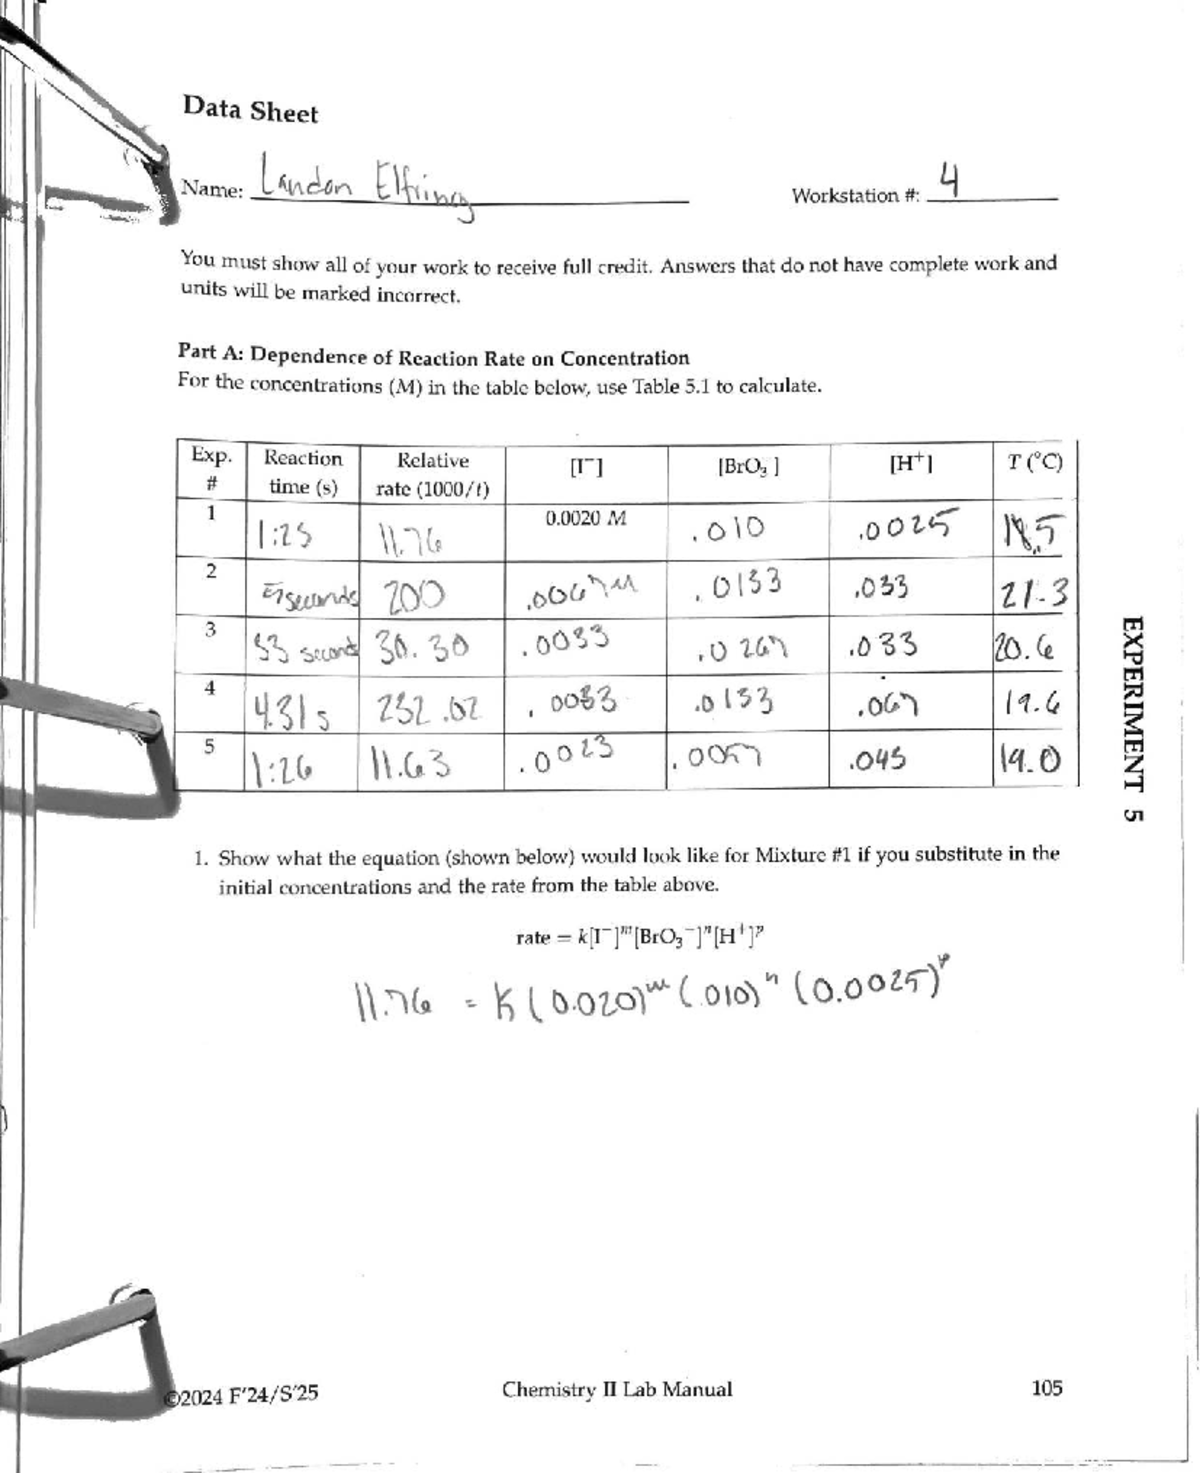 Data Sheet
Name: Landon Elfring Workstation #: 4
You must show all of your work to receive full credit. Answers that do not have complete work and
units will be marked incorrect.
Part A: Dependence of Reaction Rate on Concentration
For the concentrations (M) in the table below, use Table 5.1 to calculate.
Exp. # Reaction time (s) Relative rate (1000/t) [I⁻] [BrO₃⁻] [H⁺] T (°C)
1 1:25 11.76 0.0020 M .010 .0025 18.5
2 5 seconds 200 .0067 M .0133 .033 21.3
3 33 seconds 30.30 .0033 .0267 .033 20.6
4 4.31 s 232.02 .0033 .0133 .067 19.6
5 1:26 11.63 .0023 .0057 .045 19.0
EXPERIMENT 5
1. Show what the equation (shown below) would look like for Mixture #1 if you substitute in the
initial concentrations and the rate from the table above.
rate = k[I⁻]ᵐ[BrO₃⁻]ⁿ[H⁺]ᵖ
11.76 = K (0.020)ᵐ (.010)ⁿ (0.0025)ᵖ
©2024 F'24/S'25 Chemistry II Lab Manual 105